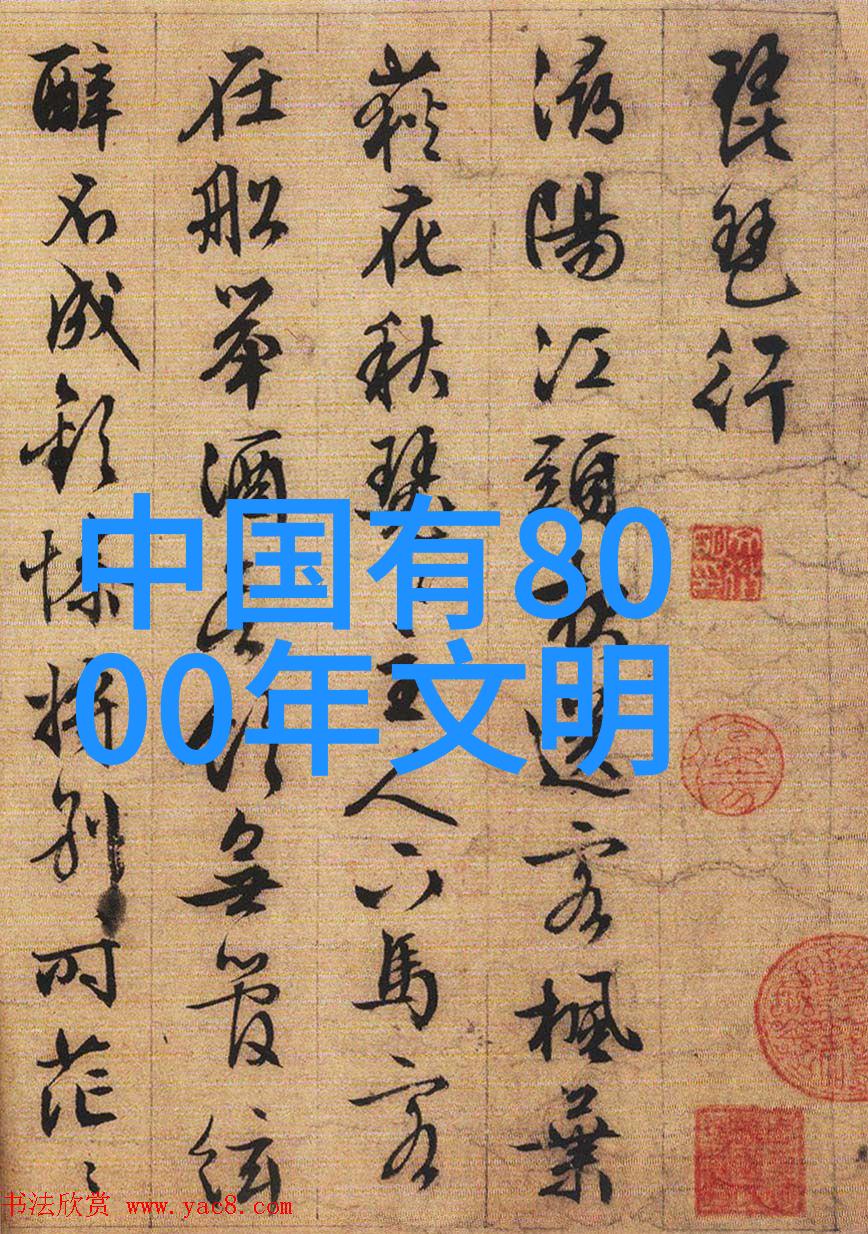 琵琶行
潯陽江頭夜送客楓葉
荻花秋瑟〻主人下馬客
在船舉酒欲飲無管絃
醉不成歡慘將別別時茫〻
中国有80
00年文明
书法欣赏 www.yac8.com